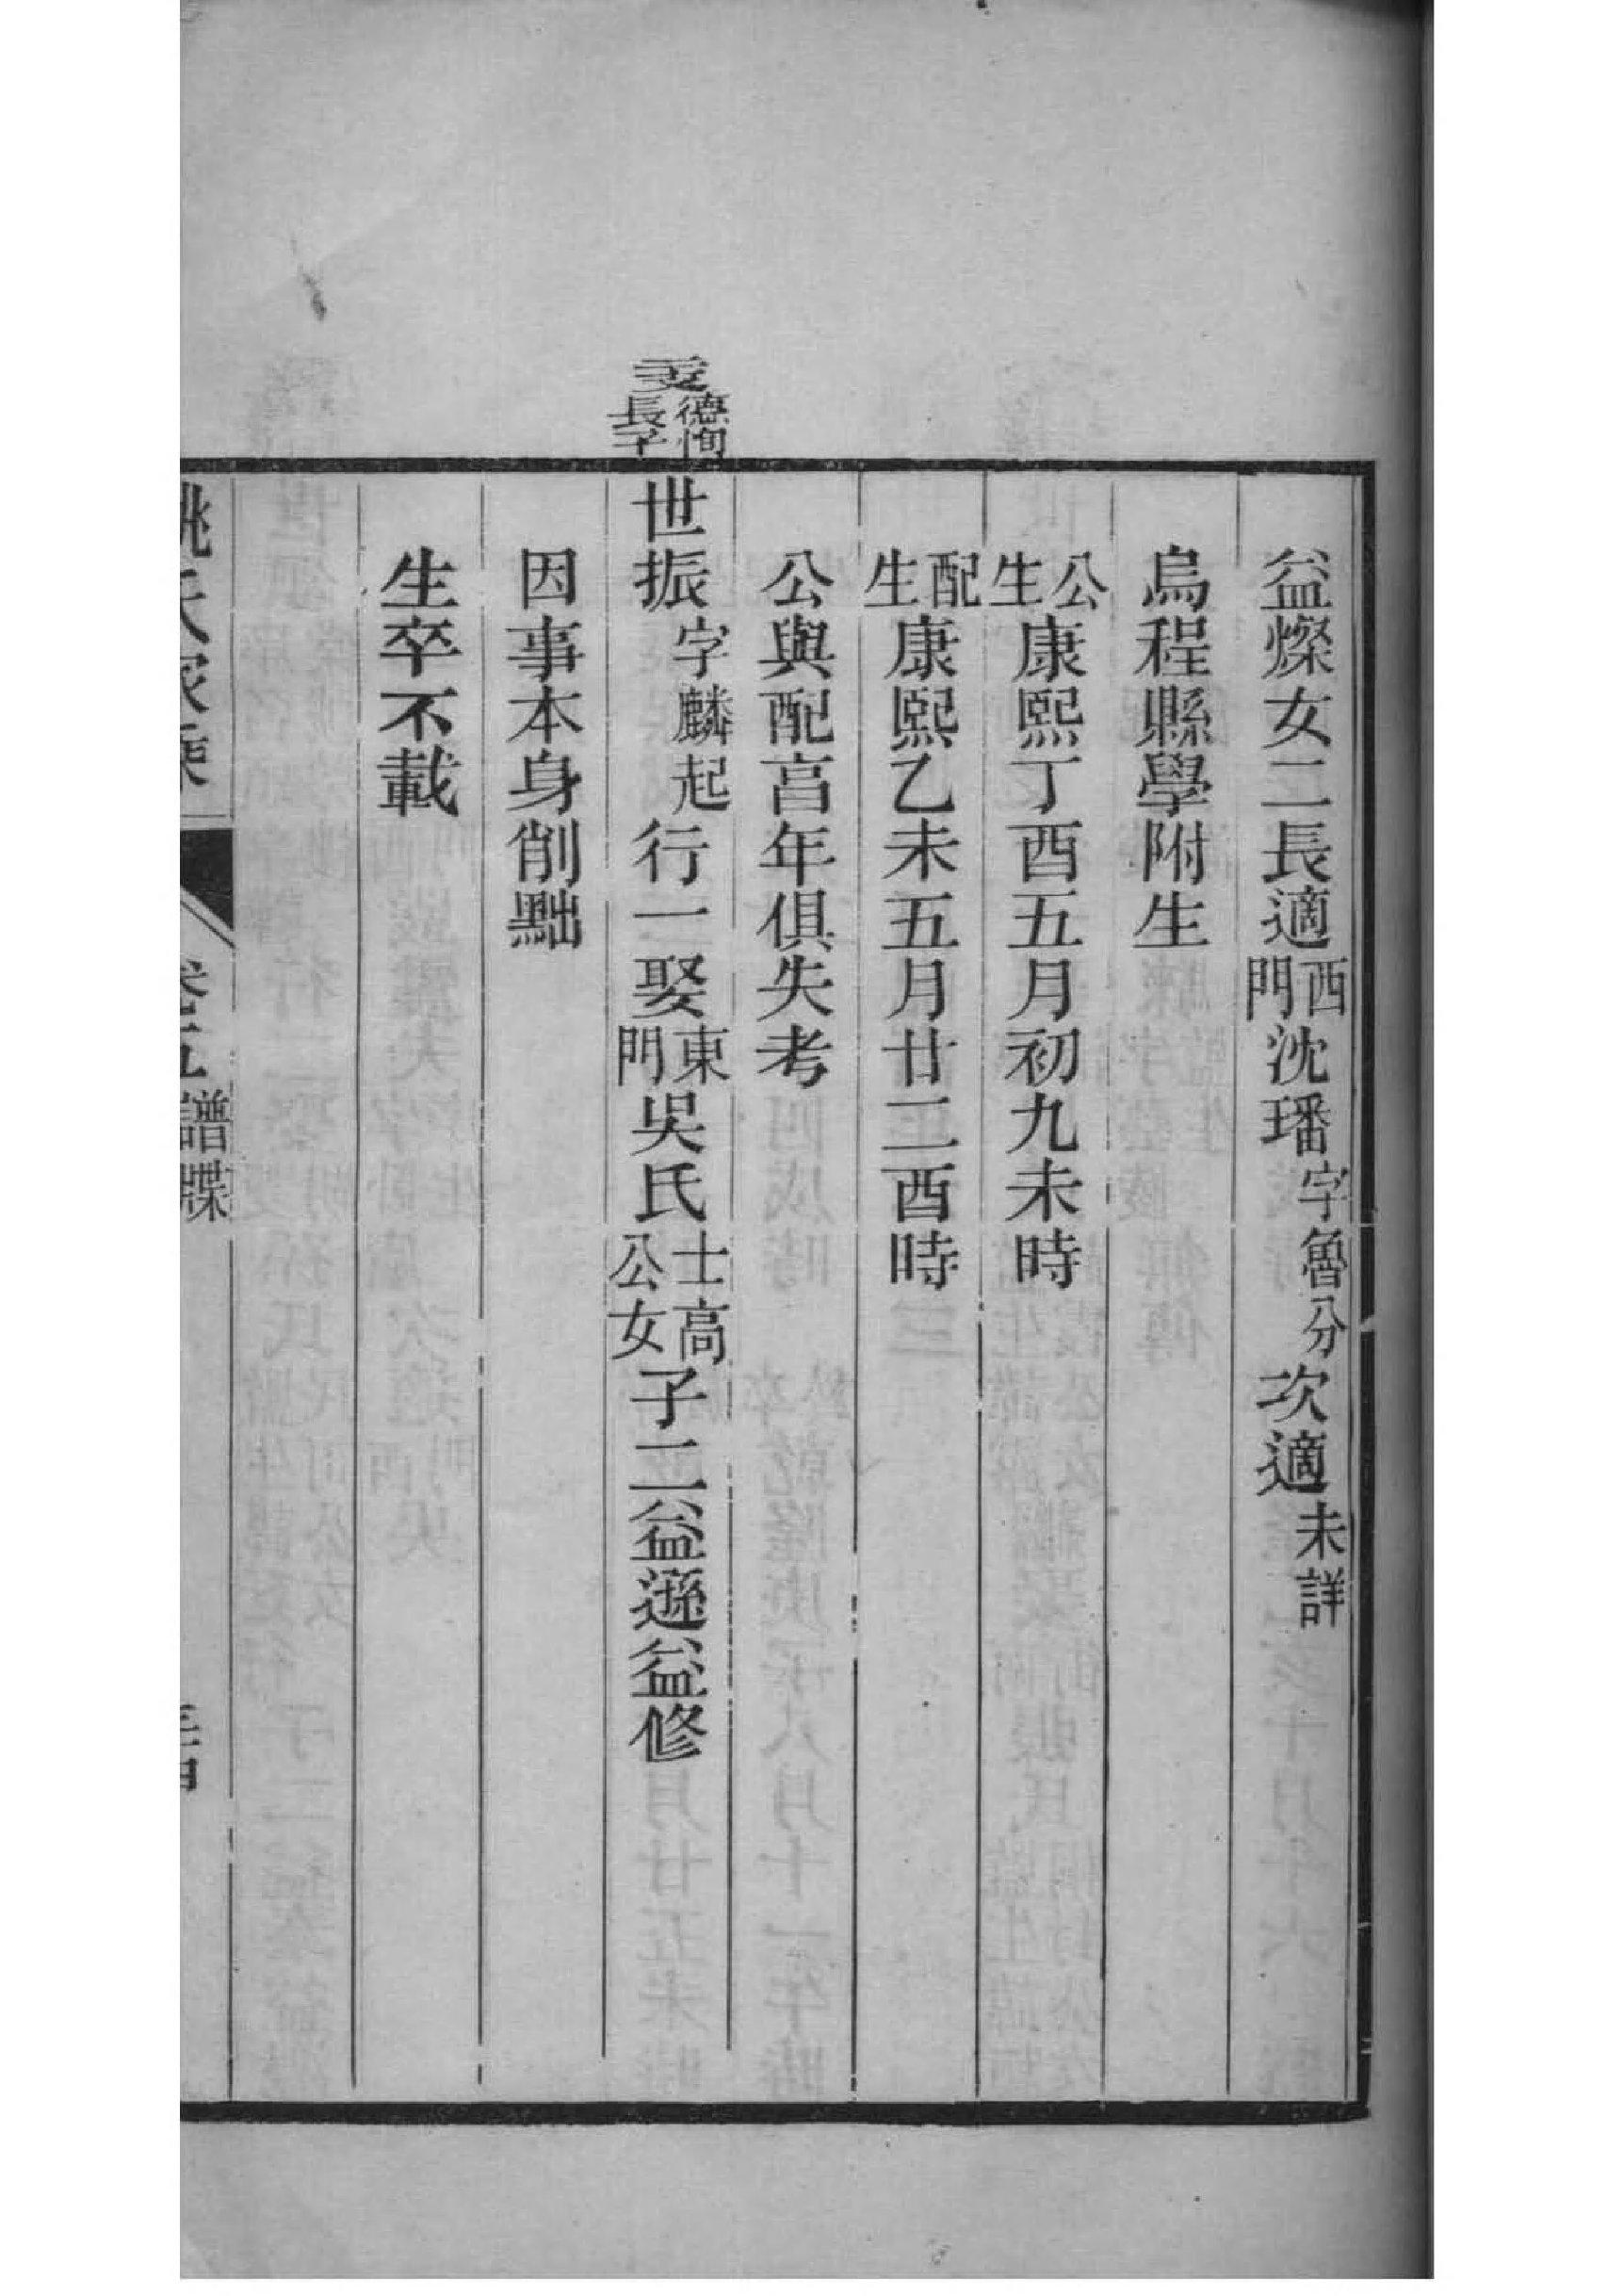 益燦女二長適西門沈璠字魯分次適未詳
烏程縣學附生
公生康熙丁酉五月初九未時
配生康熙乙未五月廿二酉時
公與配亯年俱失考
德恂長子
世振字麟起行一娶東門吳氏士高公女子二益遜益修
因事本身削黜
生卒不載
姚氏家乘
卷五譜牒